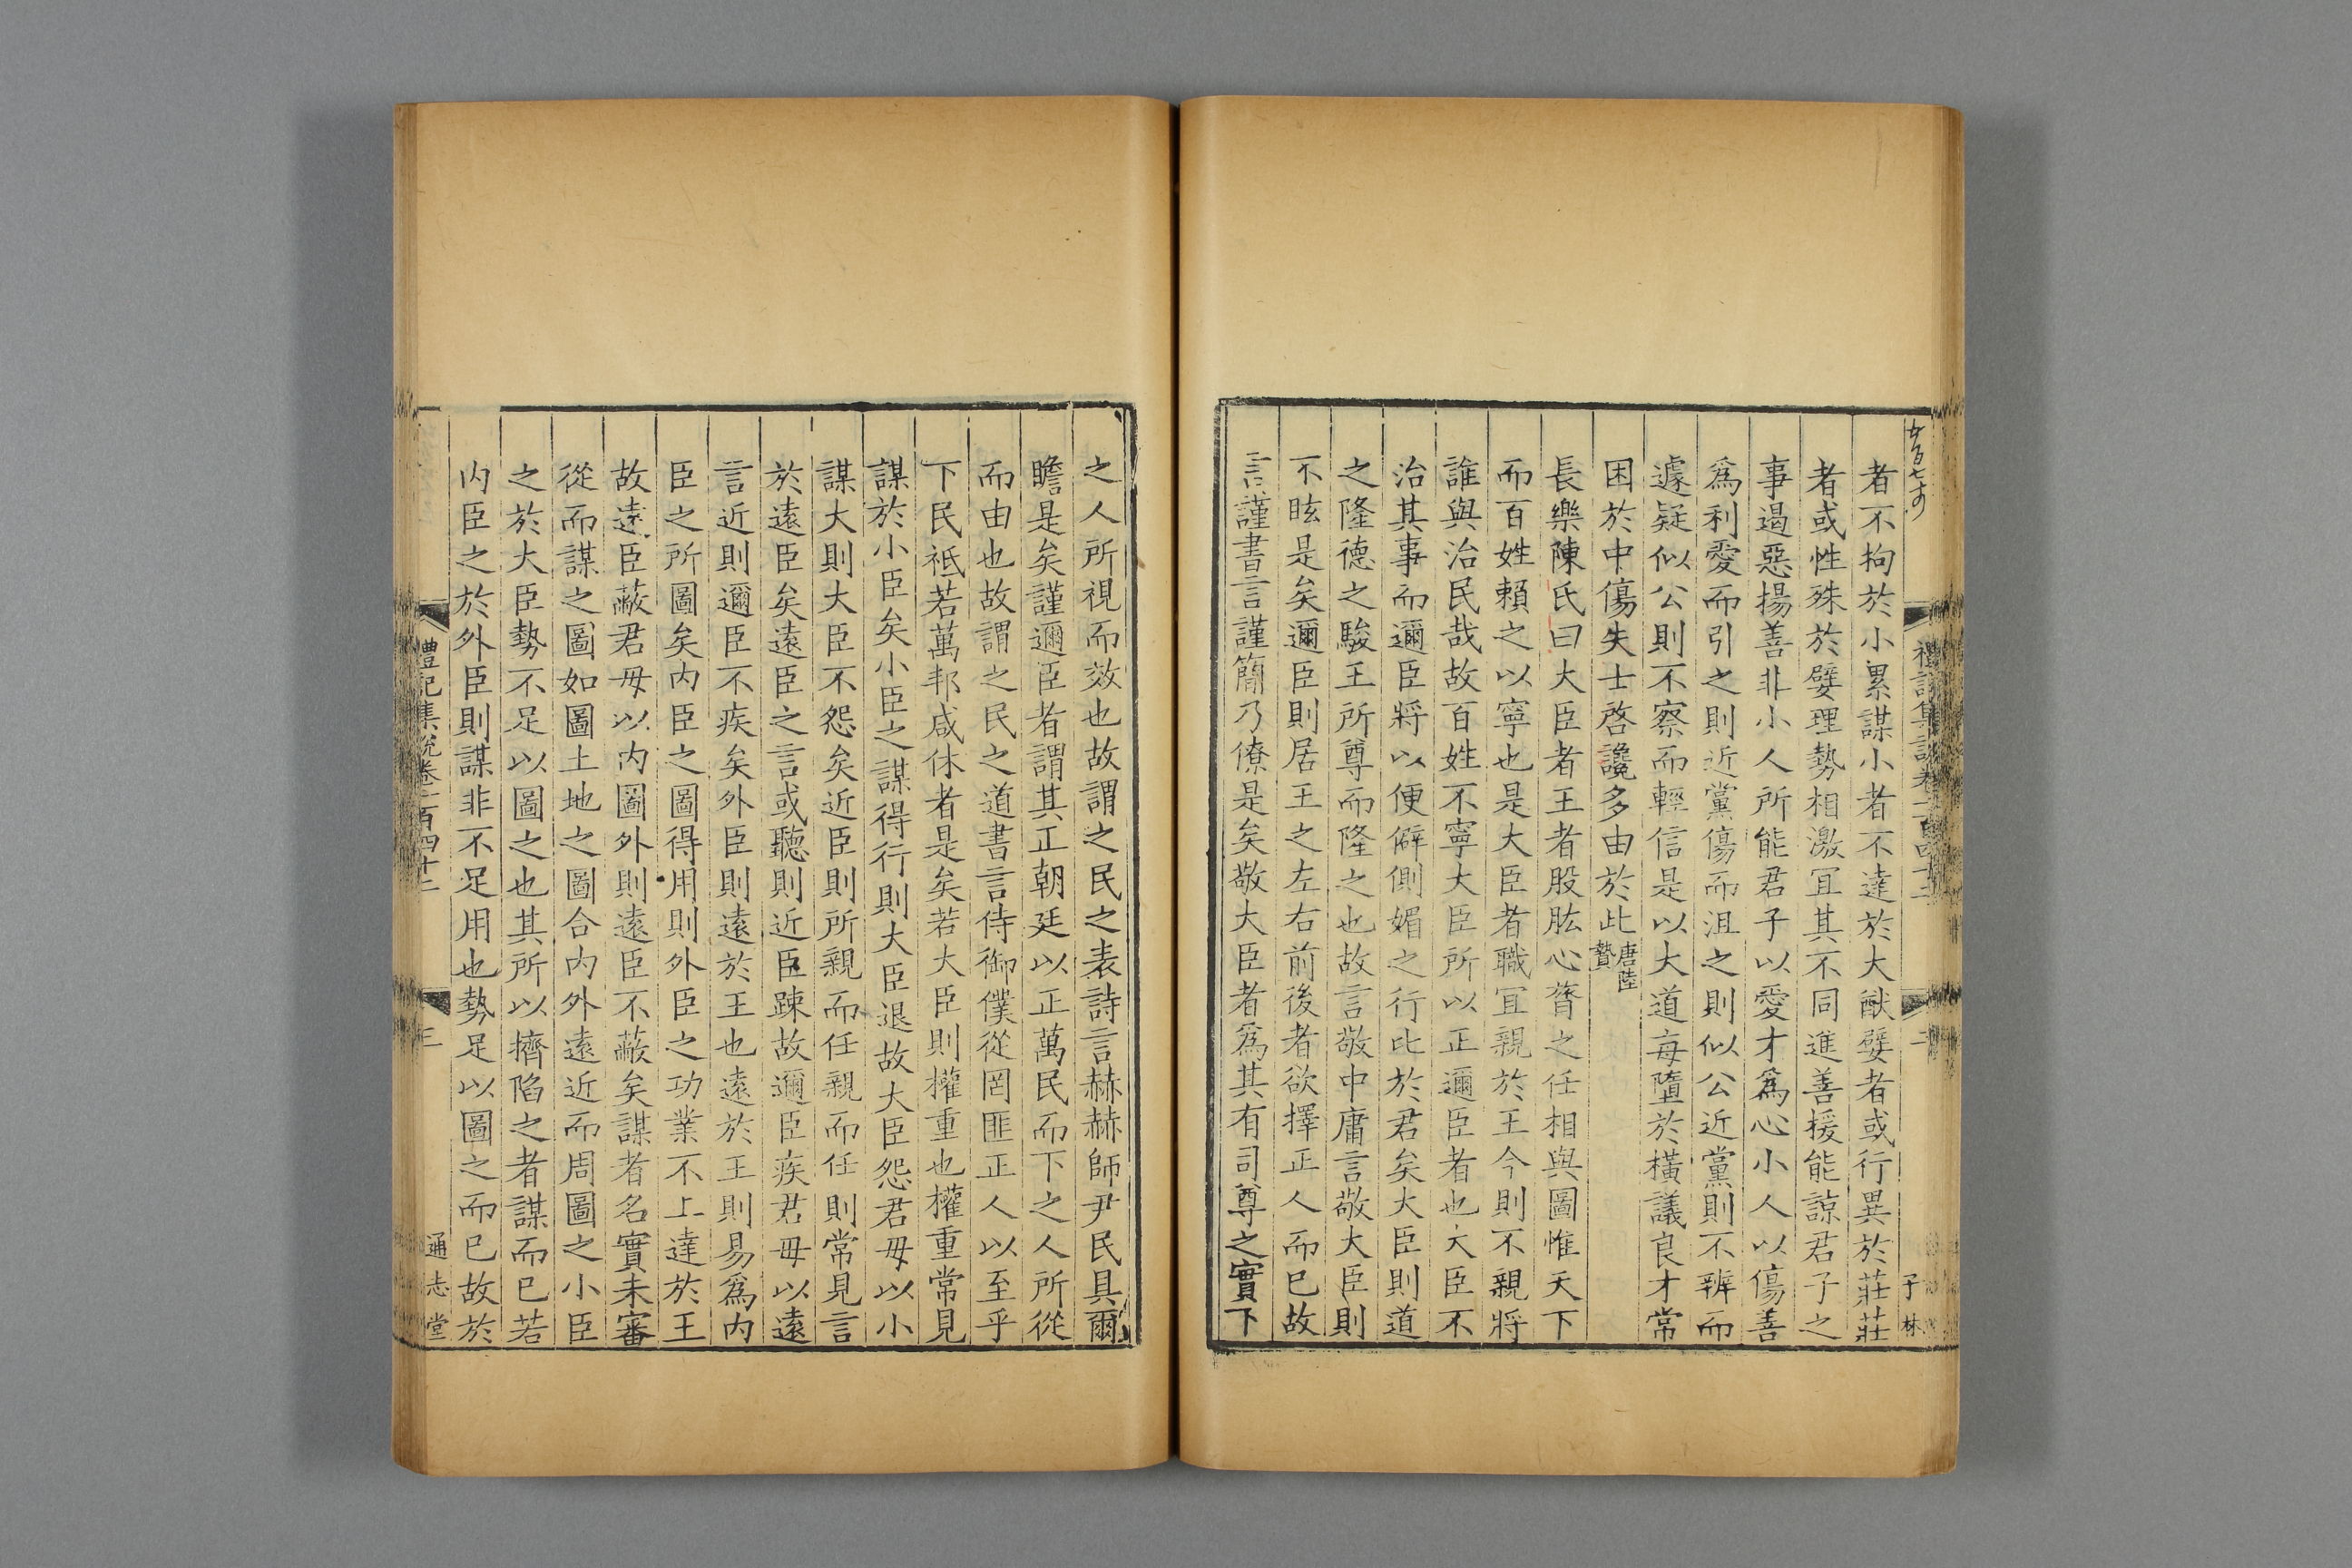 禮記集說卷一百四十二
二
者不拘於小累謀小者不達於大猷嬖者或行異於莊莊
者或性殊於嬖理勢相激冝其不同進善援能諒君子之
事遏惡揚善非小人所能君子以愛才爲心小人以傷善
爲利愛而引之則近黨傷而沮之則似公近黨則不辨而
遽疑似公則不察而輕信是以大道每墮於橫議良才常
困於中傷失士啓讒多由於此唐陸贄
長樂陳氏曰大臣者王者股肱心膂之任相與圖惟天下
而百姓賴之以寧也是大臣者職冝親於王今則不親將
誰與治民哉故百姓不寧大臣所以正邇臣者也大臣不
治其事而邇臣將以便僻側媚之行比於君矣大臣則道
之隆德之駿王所尊而隆之也故言敬中庸言敬大臣則
不眩是矣邇臣則居王之左右前後者欲擇正人而已故
言謹書言謹簡乃僚是矣敬大臣者爲其有司尊之實下
之人所視而效也故謂之民之表詩言赫赫師尹民具爾
瞻是矣謹邇臣者謂其正朝廷以正萬民而下之人所從
而由也故謂之民之道書言侍御僕從罔匪正人以至乎
下民祗若萬邦咸休者是矣若大臣則權重也權重常見
謀於小臣矣小臣之謀得行則大臣退故大臣怨君毋以小
謀大則大臣不怨矣近臣則所親而任親而任則常見言
於遠臣矣遠臣之言或聽則近臣踈故邇臣疾君毋以遠
言近則邇臣不疾矣外臣則遠於王也遠於王則易爲內
臣之所圖矣內臣之圖得用則外臣之功業不上達於王
故遠臣蔽君毋以內圖外則遠臣不蔽矣謀者名實未審
從而謀之圖如圖土地之圖合內外遠近而周圖之小臣
之於大臣勢不足以圖之也其所以擠陷之者謀而已若
內臣之於外臣則謀非不足用也勢足以圖之而已故於
禮記集說卷一百四十二
三
通志堂